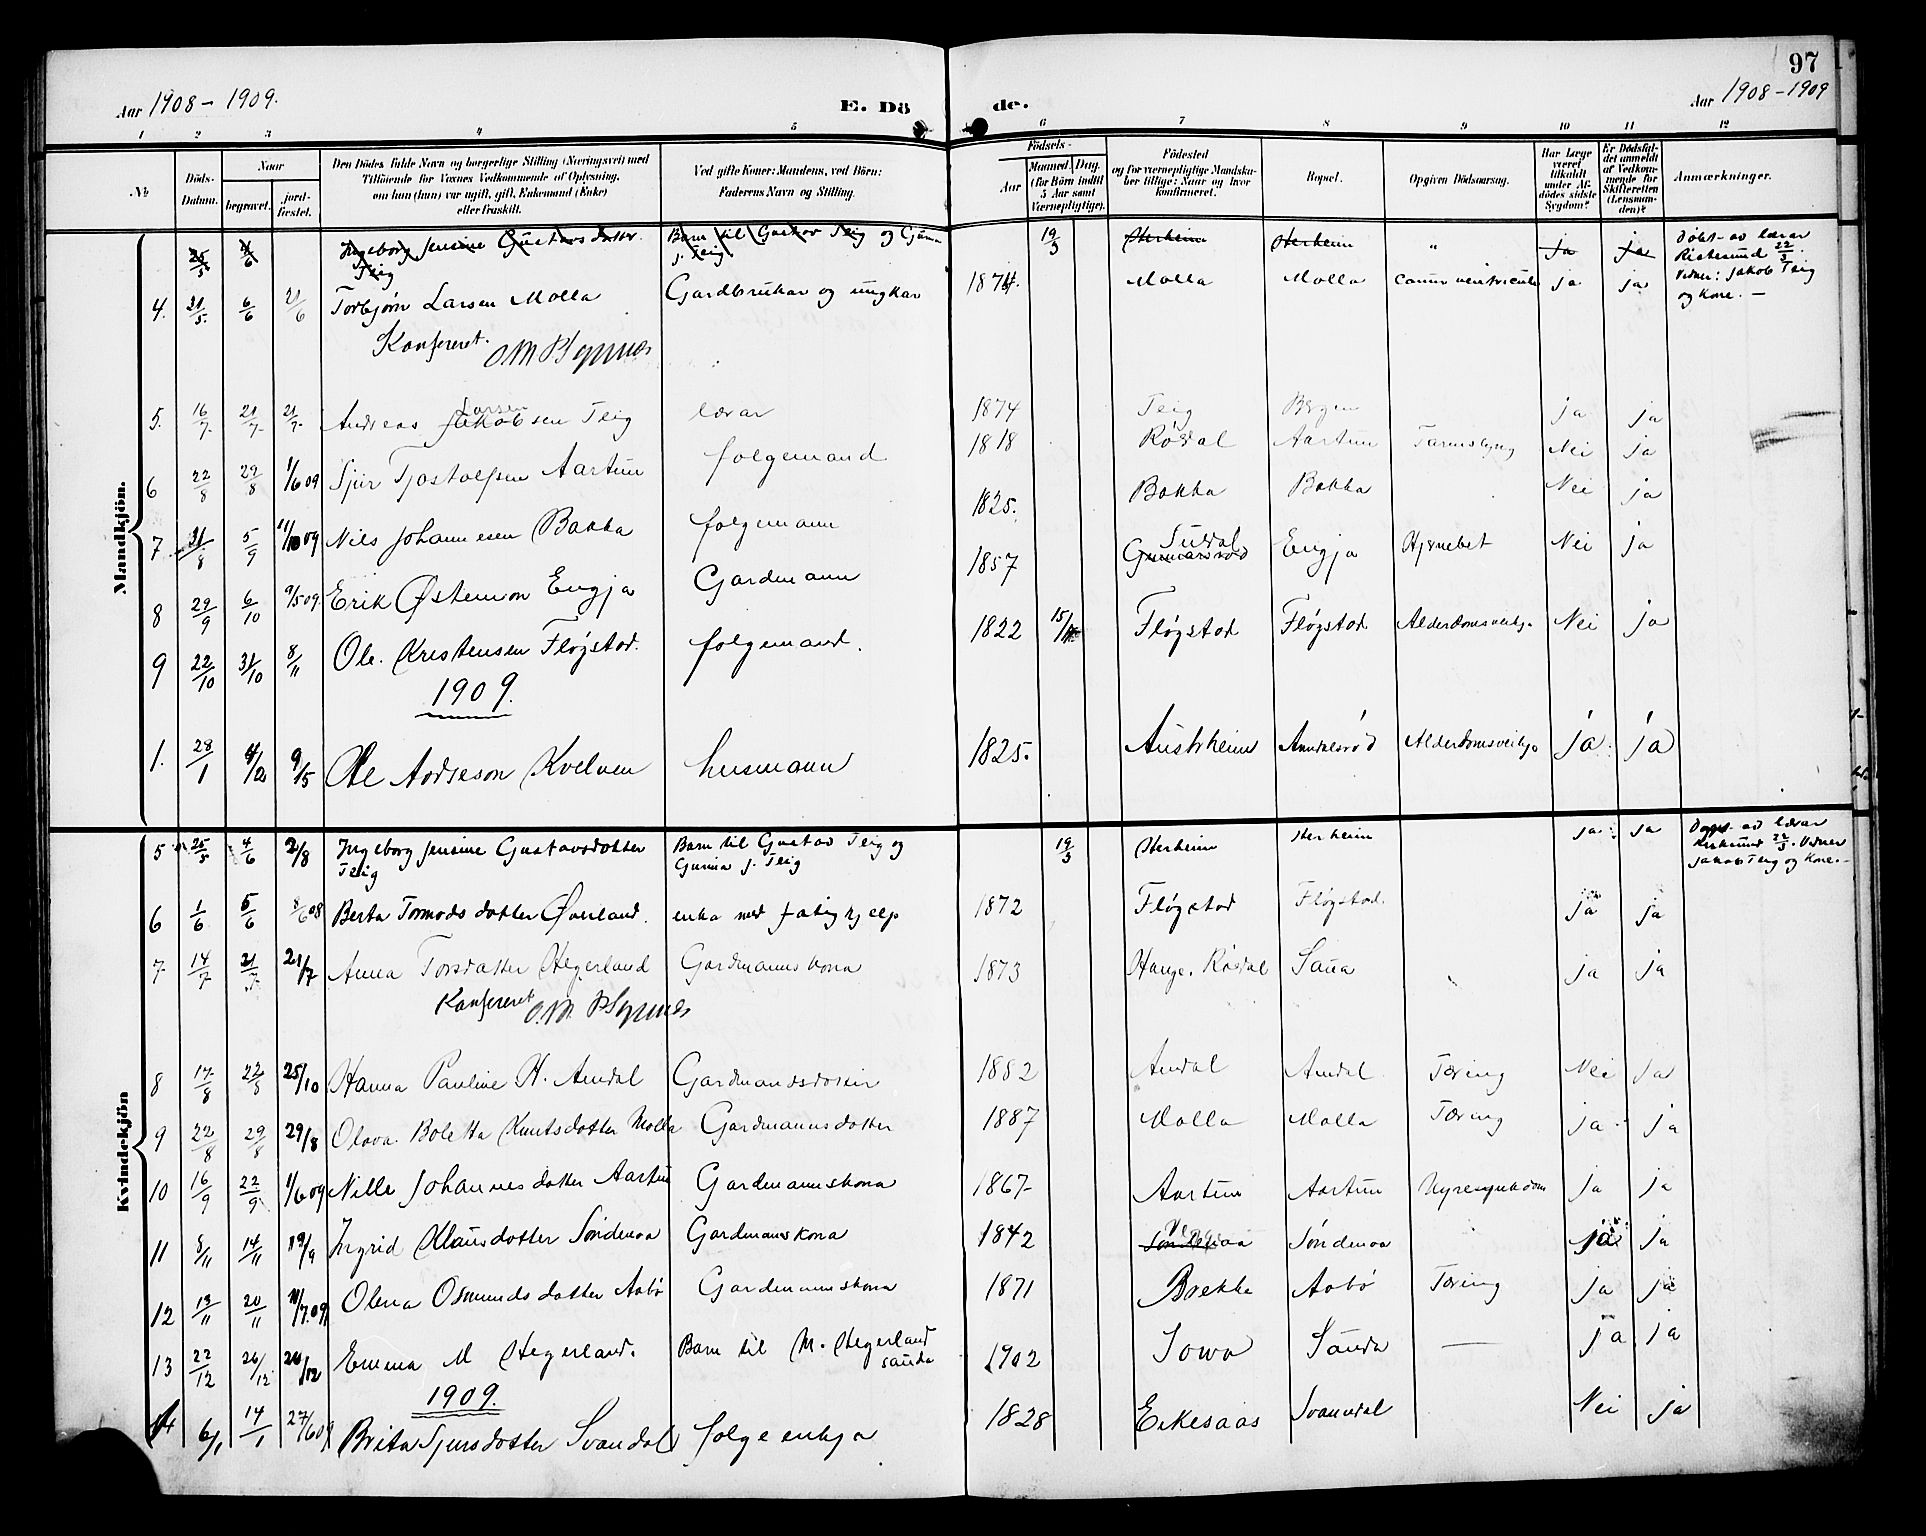 97
Aar 1908 - 1909.
E. Dö de.
Aar 1908 - 1909
1 2 3 4 5 6 7 8 9 10 11 12
№
Döds-Datum.
Naar
begravet.
jord-fæstet.
Den Dödes fulde Navn og borgerlige Stilling (Næringsvei) med
Tilföiende for Voxnes Vedkommende af Oplysning,
om han (hun) var ugift, gift, Enkemand (Enke)
eller fraskilt.
Ved gifte Koner: Mandens, ved Börn:
Faderens Navn og Stilling.
Födsels-
Aar
Maaned. Dag.
(for Börn indtil
5 Aar samt
Værnepligtige).
Födested
og for værnepligtige Mandska-
ber tillige: Naar og hvor
konfirmeret.
Bopæl.
Opgiven Dödsaarsag.
Har Læge
været
tilkaldt
under Af-
dödes sidste
Sygdom?
Er Dödsfal-
det anmeldt
af Vedkom-
mende for
Skifteretten
(Lensman-
den)?
Anmærkninger.
Mandkjön.
25/5 4/6 Ingeborg Jensine Gustavsdotter Teig Barn til Gustav Teig og Gjuna J. Teig 19/3 Sterheim Sterheim " ja ja Døbt av lærar Rikesund 22/3. Vidner: Jakob Teig og Kone. —
4. 21/5. 6/6 21/6 Torbjørn Larsen Molla Gardbrukar og ungkar 1874. Molla Molla ja ja
Konfereret.
5. 16/7 21/7 21/7 Andreas Larsen Teig lærar 1874 Teig Bergen ja ja
6 22/8 29/8 1/6 09 Sjur Tjostolfsen Aartun folgemand 1818 Røsdal Aartun Nei ja
7 31/8 5/9 11/10 09 Nils Johannesen Bakka folgemann 1825. Bakka Bakka Nei ja
8 29/9 6/10 9/5 09 Erik Østenson Engja Gardmann 1857 Engja Nei ja
9 22/10 31/10 8/11 Ole. Kristensen Fløgstad. folgemand. 1822 15/ Fløgstad Fløgstad Nei ja
1909.
1. 28/1 4/2 9/5 Ole Kvelven husmann 1825. Austrheim Alderdomsveikja ja ja
Kvindekjön
5 25/5 4/6 2/8 Ingeborg Jensine Gustavsdotter Teig Barn til Gustav Teig og Gunna J. Teig 19/3 Sterheim Sterheim ja ja av lærar 22/3. Vidner Jakob Teig og Kone. —
6 1/6 5/6 8/6 08 Berta Tormodsdotter Øverland. enka med fatighjelp 1872 Fløgstad Fløgstad. ja ja
7. 14/7 21/7 21/7 Anna Torsdatter Hegerland Gardmannskona 1873 Hauge. Røsdal Sauda ja ja
Konfereret
8 17/8 22/8 25/10 Hanna Pauline H. Amdal 1882 Amdal Amdal Tæring Nei Ja
9 22/8 29/8 29/8 Olava Boletta Knutsdotter Molla Gardmannsdotter 1887 Molla Molla Tæring ja ja
10 16/9 22/9 1/6 09 Nille Johannesdotter Aartun Gardmannskona 1867 Aartun Aartun Nyresjukdom ja ja
11 8/11 14/11 19/9 Ingrid Klausdotter Søndenaa Gardmannskona 1842 Søndenaa ja ja
12 13/11 20/11 11/7.09 Olena Osmundsdotter Aabø Gardmannskona 1871 Brekke Aabø Tæring ja ja
13 22/12 26/12 26/12 Emma M Hegerland. Barn til M. Hegerland Sauda 1902 Iowa Sauda — ja ja
1909.
6/1 14/1 27/6 09 Brita Sjursdotter Svandal folgeenkja 1828 Eikesaas Svandal Nei ja